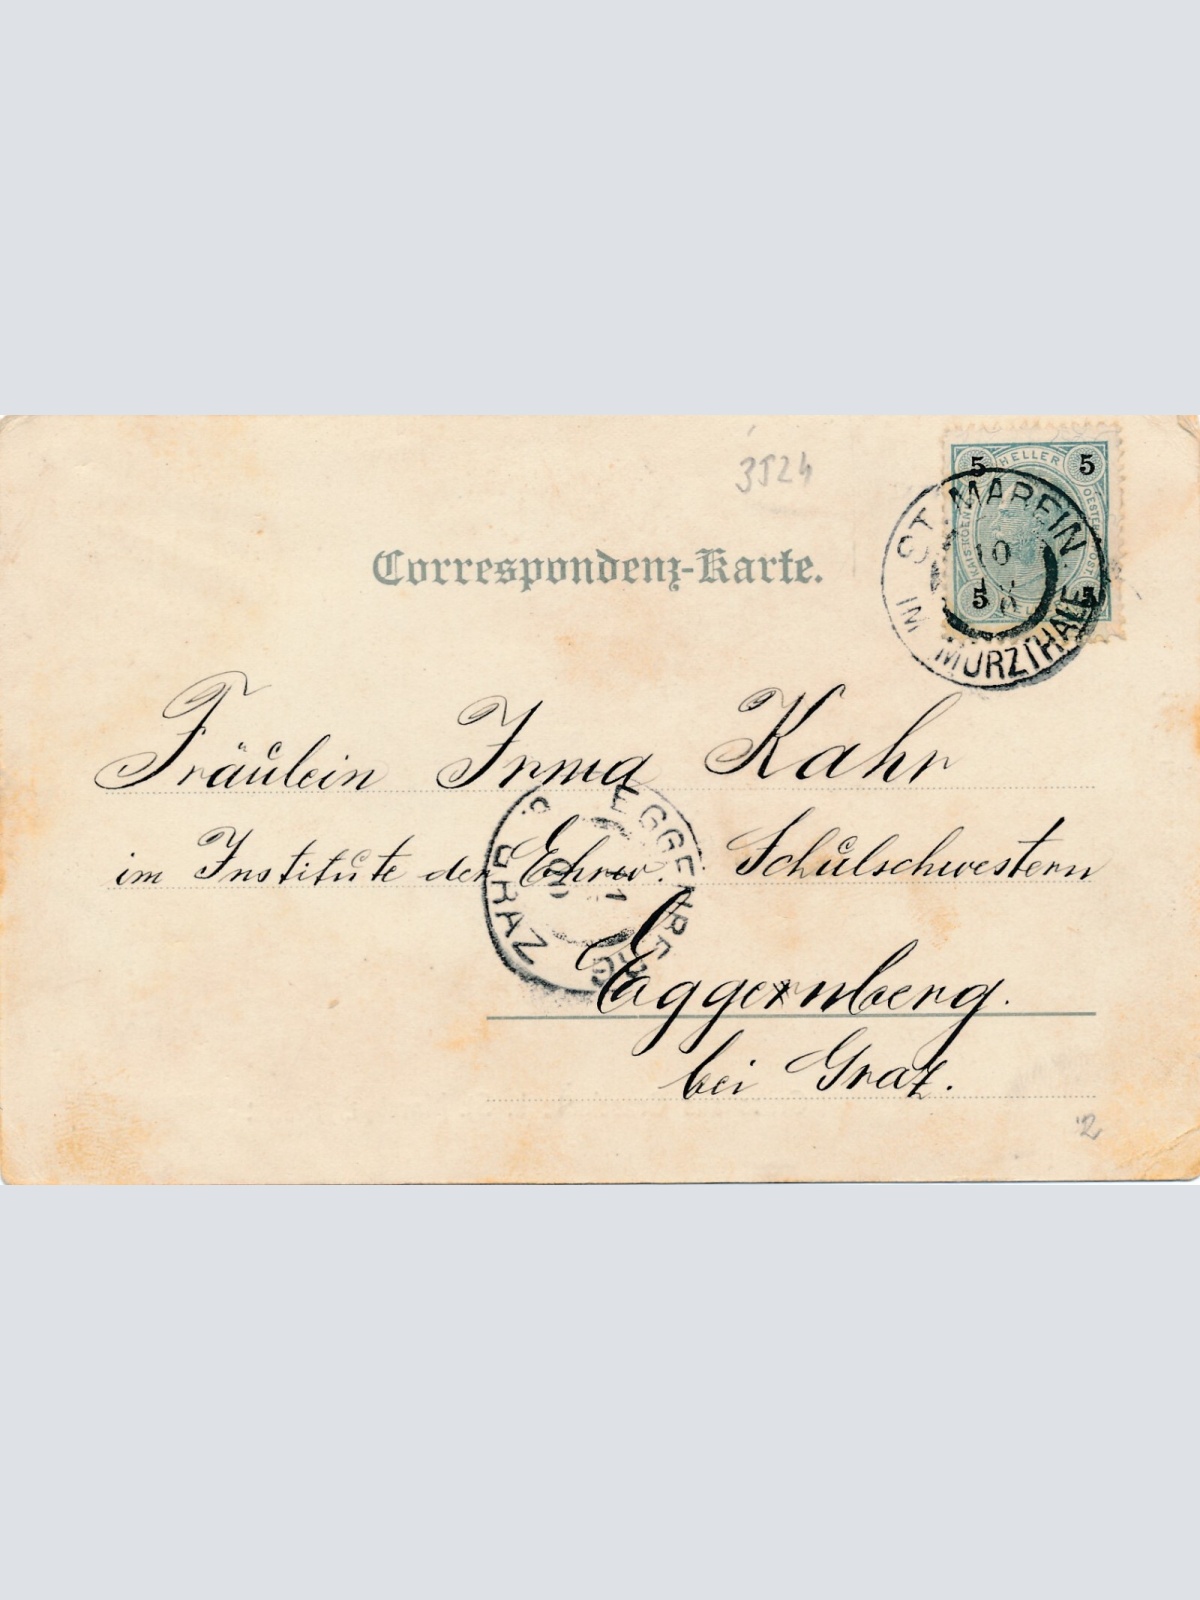 3524
5 HELLER 5
ST. MAREIN
10
5 5
IM MÜRZTHALE
Correspondenz-Karte.
Fräulein Irma Kahr
im Institute der Ehrw. Schulschwestern
EGGENBERG
B. GRAZ
Eggenberg.
bei Graz.
2